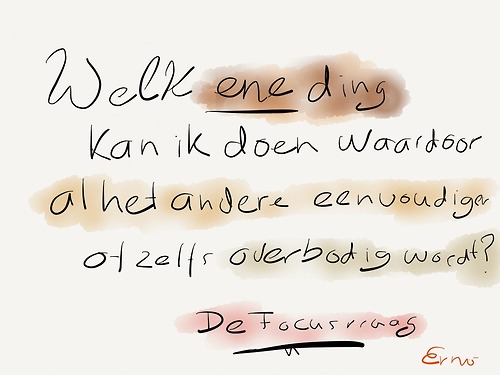 Welk ene ding
kan ik doen waardoor
al het andere eenvoudiger
of zelfs overbodig wordt?
De Focusvraag
Erno